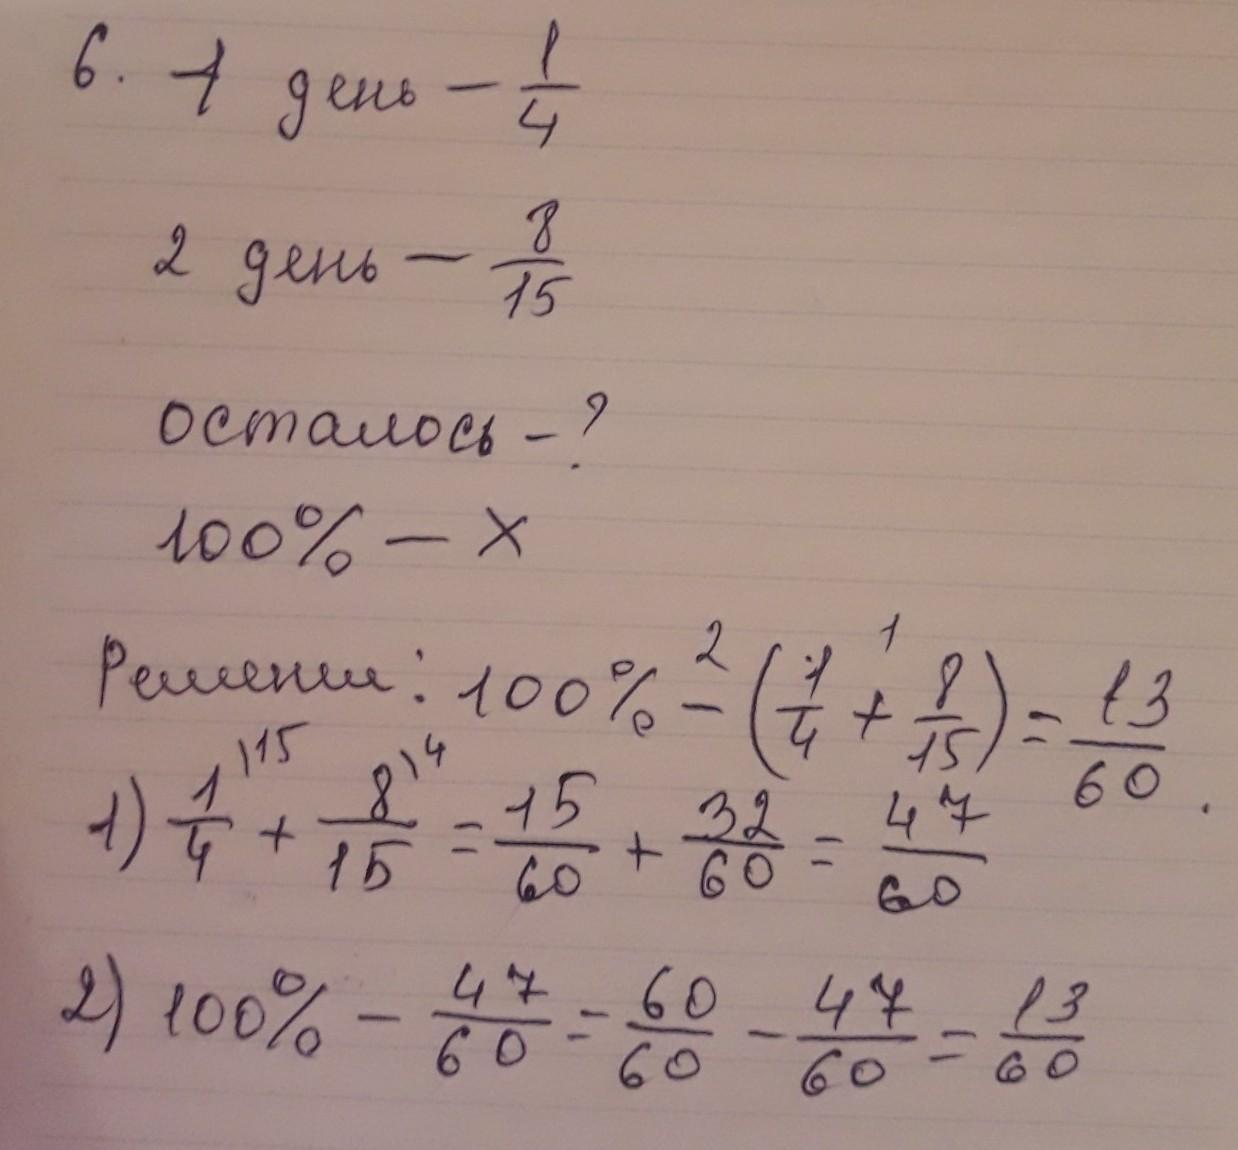 6. 1 день – 1/4
2 день – 8/15
осталось – ?
100% – x
Решении: 100% –² (1/4 +¹ 8/15) = 13/60.
1) 1/4\15 + 8/15\4 = 15/60 + 32/60 = 47/60
2) 100% – 47/60 = 60/60 – 47/60 = 13/60